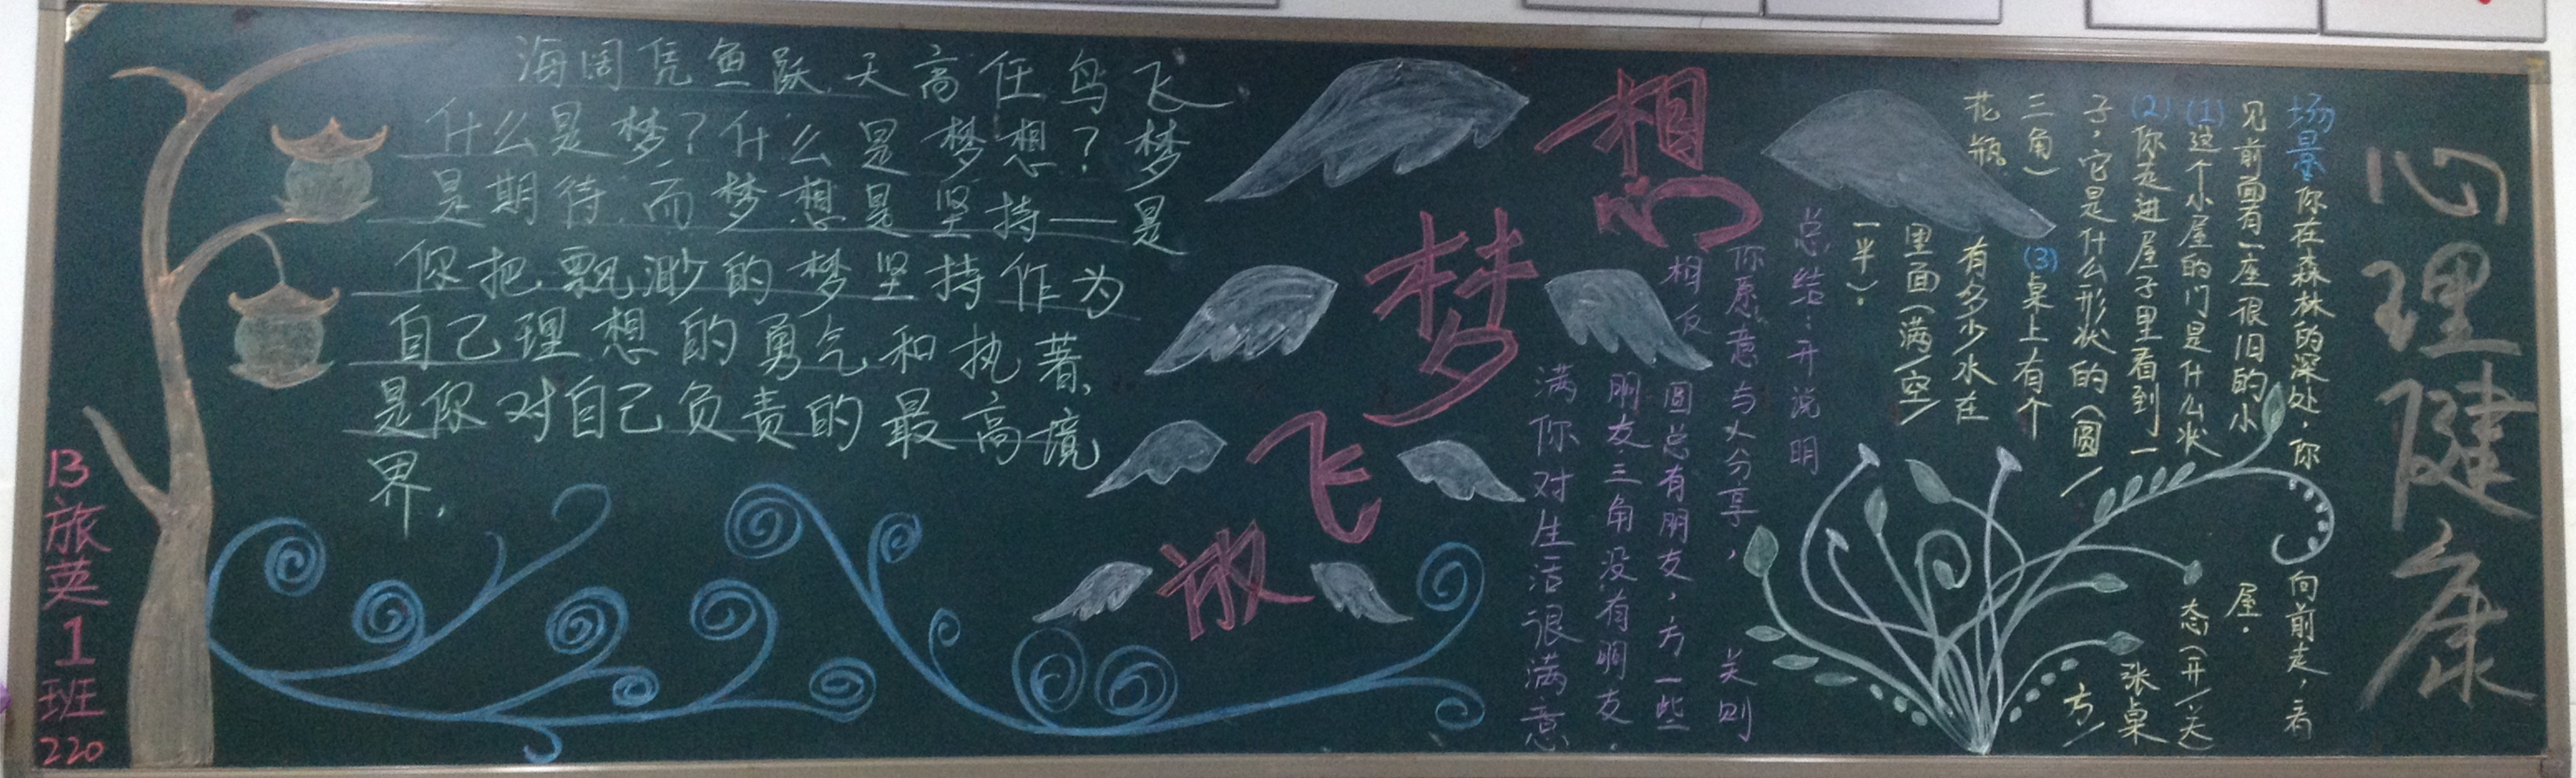 海阔凭鱼跃 天高任鸟飞
什么是梦？什么是梦想？梦
是期待,而梦想是坚持——是
你把飘渺的梦坚持作为
自己理想的勇气和执著、
是你对自己负责的最高境
界,
B旅英1班
220
放飞梦想
心理健康
场景:你在森林的深处,你向前走,看
见前面有一座很旧的小屋.
(1)这个小屋的门是什么状态(开/关)
(2)你走进屋子里看到一张桌
子,它是什么形状的(圆/方/
三角) (3)桌上有个
花瓶,有多少水在
里面(满/空/
一半).
总结:开说明
你愿意与人分享,关则
相反 圆总有朋友,方一些
朋友.三角没有朋友.
满你对生活很满意